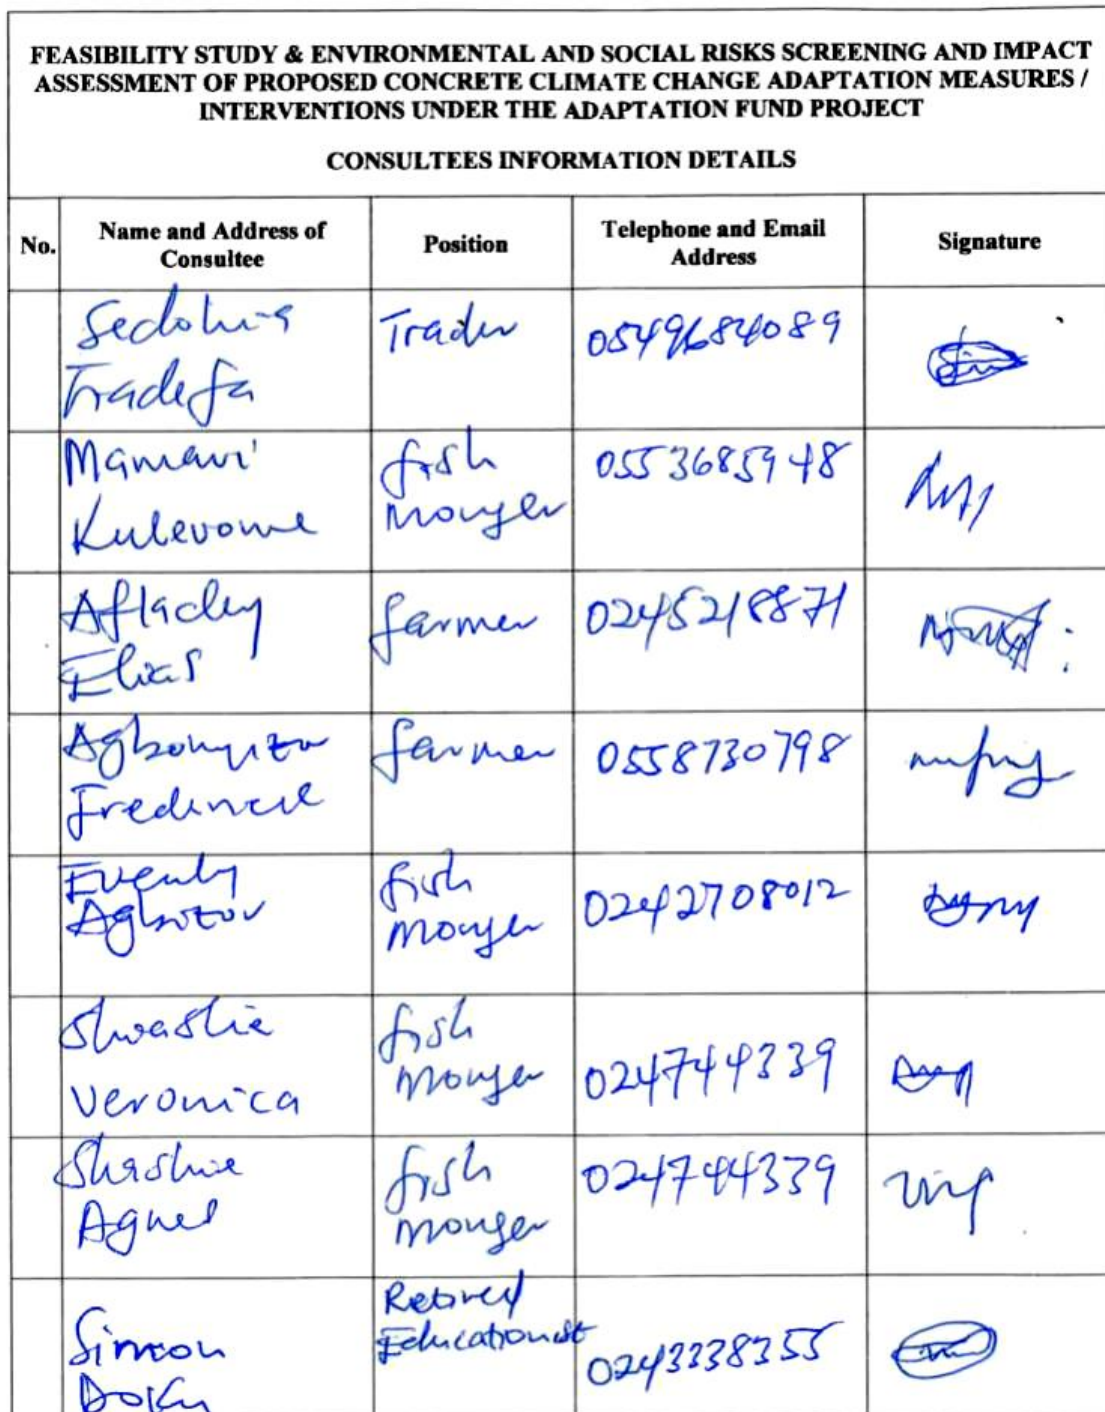 FEASIBILITY STUDY & ENVIRONMENTAL AND SOCIAL RISKS SCREENING AND IMPACT
ASSESSMENT OF PROPOSED CONCRETE CLIMATE CHANGE ADAPTATION MEASURES /
INTERVENTIONS UNDER THE ADAPTATION FUND PROJECT
CONSULTEES INFORMATION DETAILS
No.
Name and Address of
Consultee
Position
Telephone and Email
Address
Signature
Tradefa
Trader
0549684089
Mamavi
Kulevome
fish
monger
0553685948
Elias
farmer
0245218871
farmer
0558730798
fish
monger
0242708012
Veronica
fish
monger
024744339
Agnes
fish
monger
024744339
Simon
Doku
Retired
Educationist
0243338355